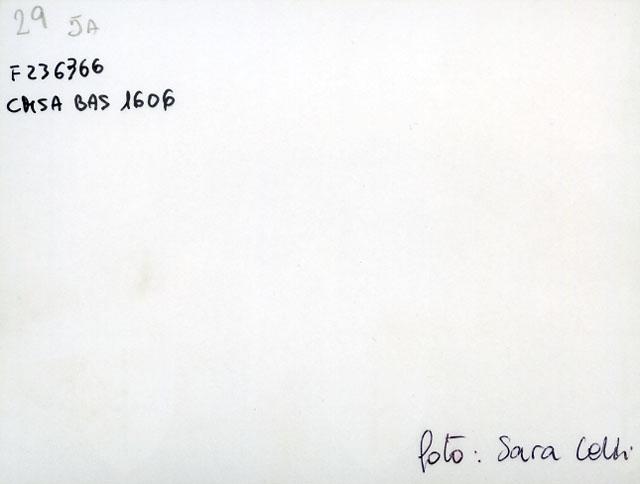 29 5A
F236766
CMSA BAS 1606
foto: Sara Celli